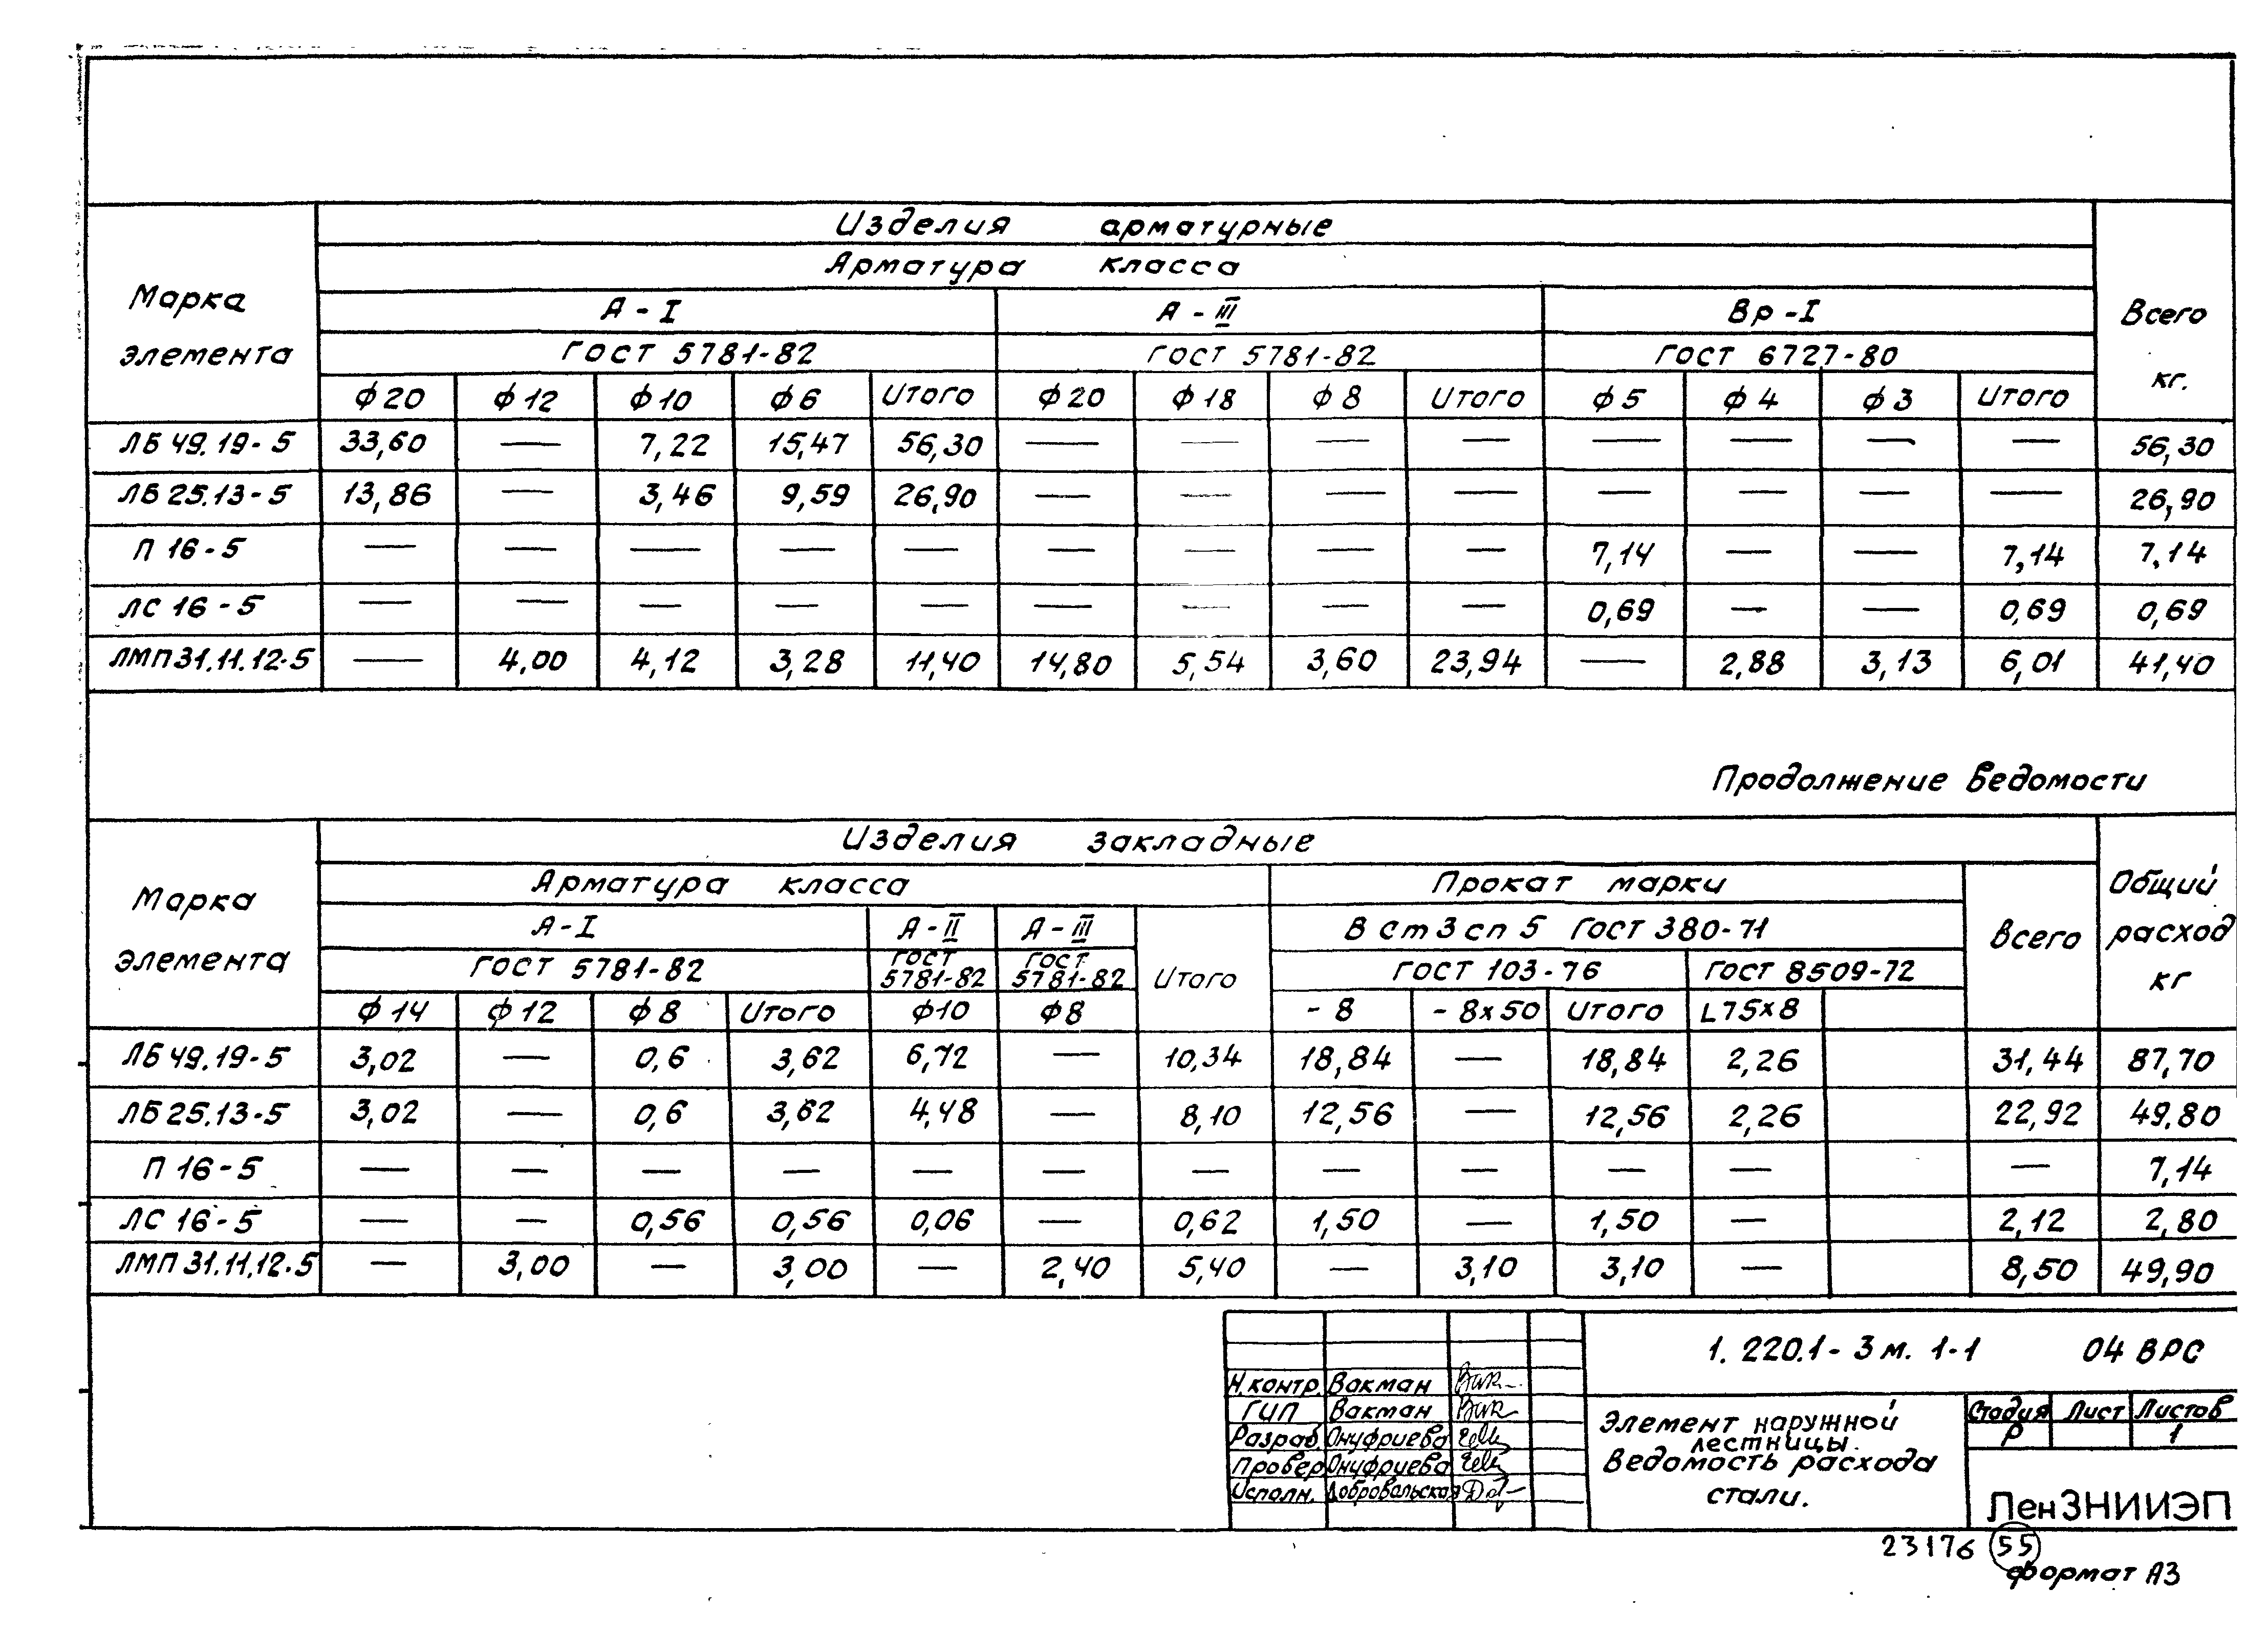 Изделия арматурные
Арматура класса
Марка элемента
А-I А-III Вр-I
Всего кг.
ГОСТ 5781-82 ГОСТ 5781-82 ГОСТ 6727-80
ф20 ф12 ф10 ф6 Итого ф20 ф18 ф8 Итого ф5 ф4 ф3 Итого
ЛБ 49.19-5 33,60 — 7,22 15,47 56,30 — — — — — — — — 56,30
ЛБ 25.13-5 13,86 — 3,46 9,59 26,90 — — — — — — — — 26,90
П 16-5 — — — — — — — — — 7,14 — — 7,14 7,14
ЛС 16-5 — — — — — — — — — 0,69 — — 0,69 0,69
ЛМП 31.11.12-5 — 4,00 4,12 3,28 11,40 14,80 5,54 3,60 23,94 — 2,88 3,13 6,01 41,40
Продолжение ведомости
Изделия закладные
Арматура класса Прокат марки
Марка элемента
Общий расход кг
А-I А-II А-III Итого В ст3сп5 ГОСТ 380-71 Всего
ГОСТ 5781-82 ГОСТ 5781-82 ГОСТ 5781-82 ГОСТ 103-76 ГОСТ 8509-72
ф14 ф12 ф8 Итого ф10 ф8 -8 -8х50 Итого L75х8
ЛБ 49.19-5 3,02 — 0,6 3,62 6,72 — 10,34 18,84 — 18,84 2,26 31,44 87,70
ЛБ 25.13-5 3,02 — 0,6 3,62 4,48 — 8,10 12,56 — 12,56 2,26 22,92 49,80
П 16-5 — — — — — — — — — — — — 7,14
ЛС 16-5 — — 0,56 0,56 0,06 — 0,62 1,50 — 1,50 — 2,12 2,80
ЛМП 31.11.12-5 — 3,00 — 3,00 — 2,40 5,40 — 3,10 3,10 — 8,50 49,90
1.220.1-3м.1-1 04 ВРС
Н.контр. Вакман
ГИП Вакман
Разраб. Онуфриева
Провер Онуфриева
Исполн. Добровольская
Элемент наружной
лестницы.
Ведомость расхода
стали.
Стадия Лист Листов
Р 1
ЛенЗНИИЭП
23176 55
формат А3